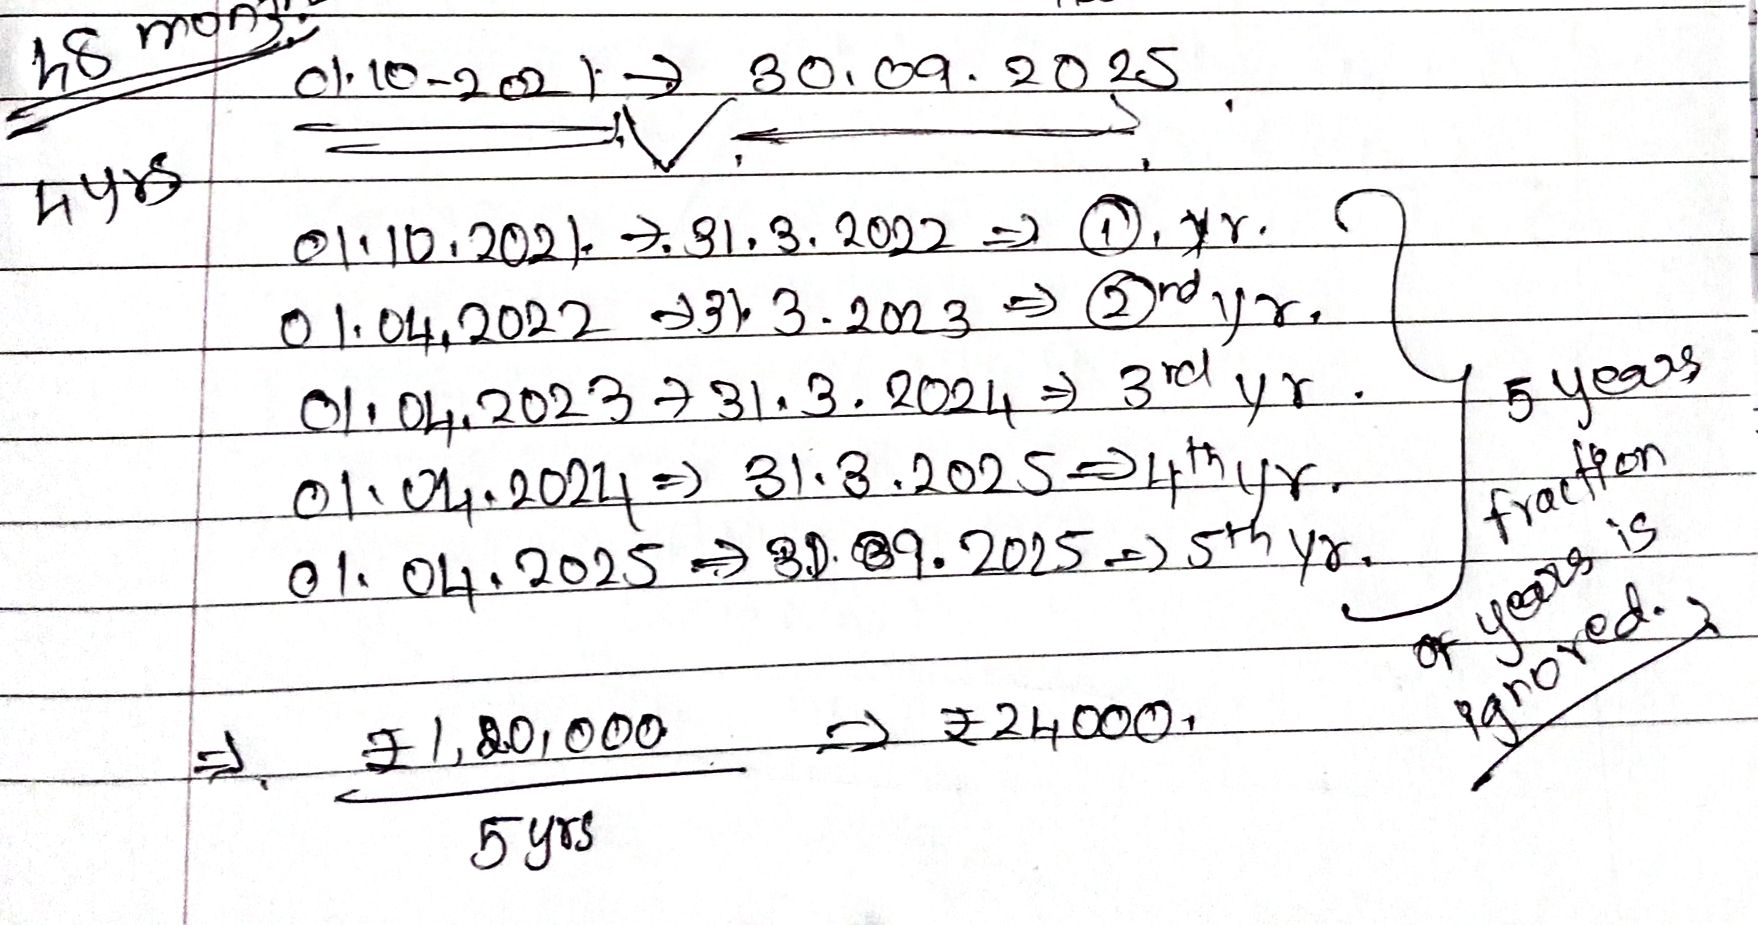 48 month
01.10-2021 → 30.09.2025
4 yrs
01.10.2021. → 31.3.2022 ⇒ ①. yr.
01.04.2022 → 31.3.2023 ⇒ ②nd yr.
01.04.2023 → 31.3.2024 ⇒ 3rd yr.
01.04.2024 ⇒ 31.3.2025 ⇒ 4th yr.
01.04.2025 ⇒ 30.09.2025 ⇒ 5th yr.
5 years
fraction
of years is
ignored.
⇒ ₹1,20,000 ⇒ ₹24000.
5 yrs